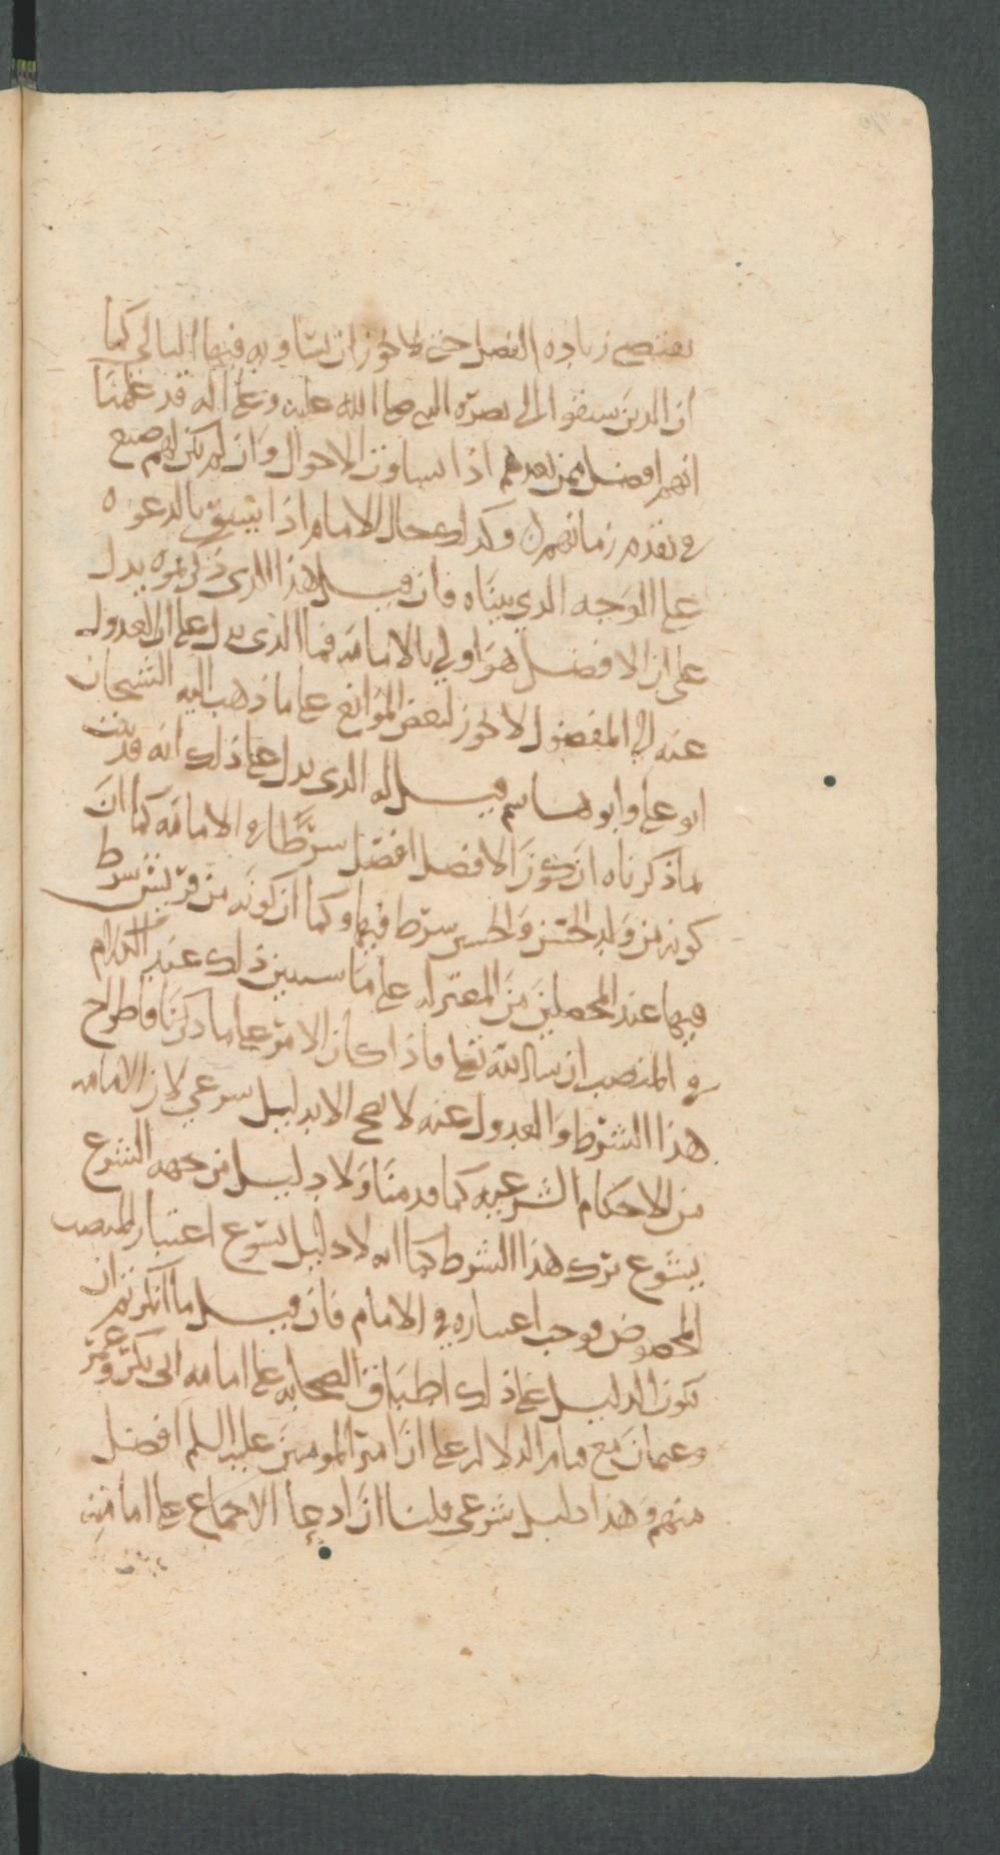 يقتضي زياده الفضل حتى لا يجوز ان يساويه فيها التالي كما
ان الذين سبقوا الى نصرة النبي صلى الله عليه وعلى اله قد علمنا
انهم افضل ممن بعدهم اذا تساوت الاحوال وان لم يكن لهم صنع
في تقدم زمانهم وكذلك حال الامام اذا سبق بالدعوه
على الوجه الذي بيناه فان قيل هذا الذي ذكرتموه يدل
على ان الافضل هو اولى بالامامه فما الذي يدل على ان العدول
عنه الى المفضول لا يجوز لبعض الموانع على ما ذهب اليه الشيخان
ابو علي وابو هاشم قيل له الذي يدل على ذلك انه قد ثبت
بما ذكرناه ان كون الافضل افضل شرطا في الامامه كما ان
كونه من ولد الحسن والحسين شرط فيها وكما ان كونه من قريش شرط
فيها عند المحصلين من المعتزله على ما سنبين ذلك عند الكلام
في المنصب ان شا الله تعالى فاذا كان الامر على ما ذكرنا فاطراح
هذا الشرط والعدول عنه لا يصح الا بدليل شرعي لان الامامه
من الاحكام الشرعيه كما قدمنا ولا دليل من جهه الشرع
يسوغ ترك هذا الشرط كما انه لا دليل يسوغ اعتبار المنصب
المخصوص فوجب اعتباره في الامام فان قيل ما انكرتم ان
يكون الدليل على ذلك اطباق الصحابه على امامه ابي بكر وعمر
وعثمان مع قيام الدلاله على ان امير المومنين عليه السلم افضل
منهم وهذا دليل شرعي قلنا ان ادعا الاجماع على امامتهم